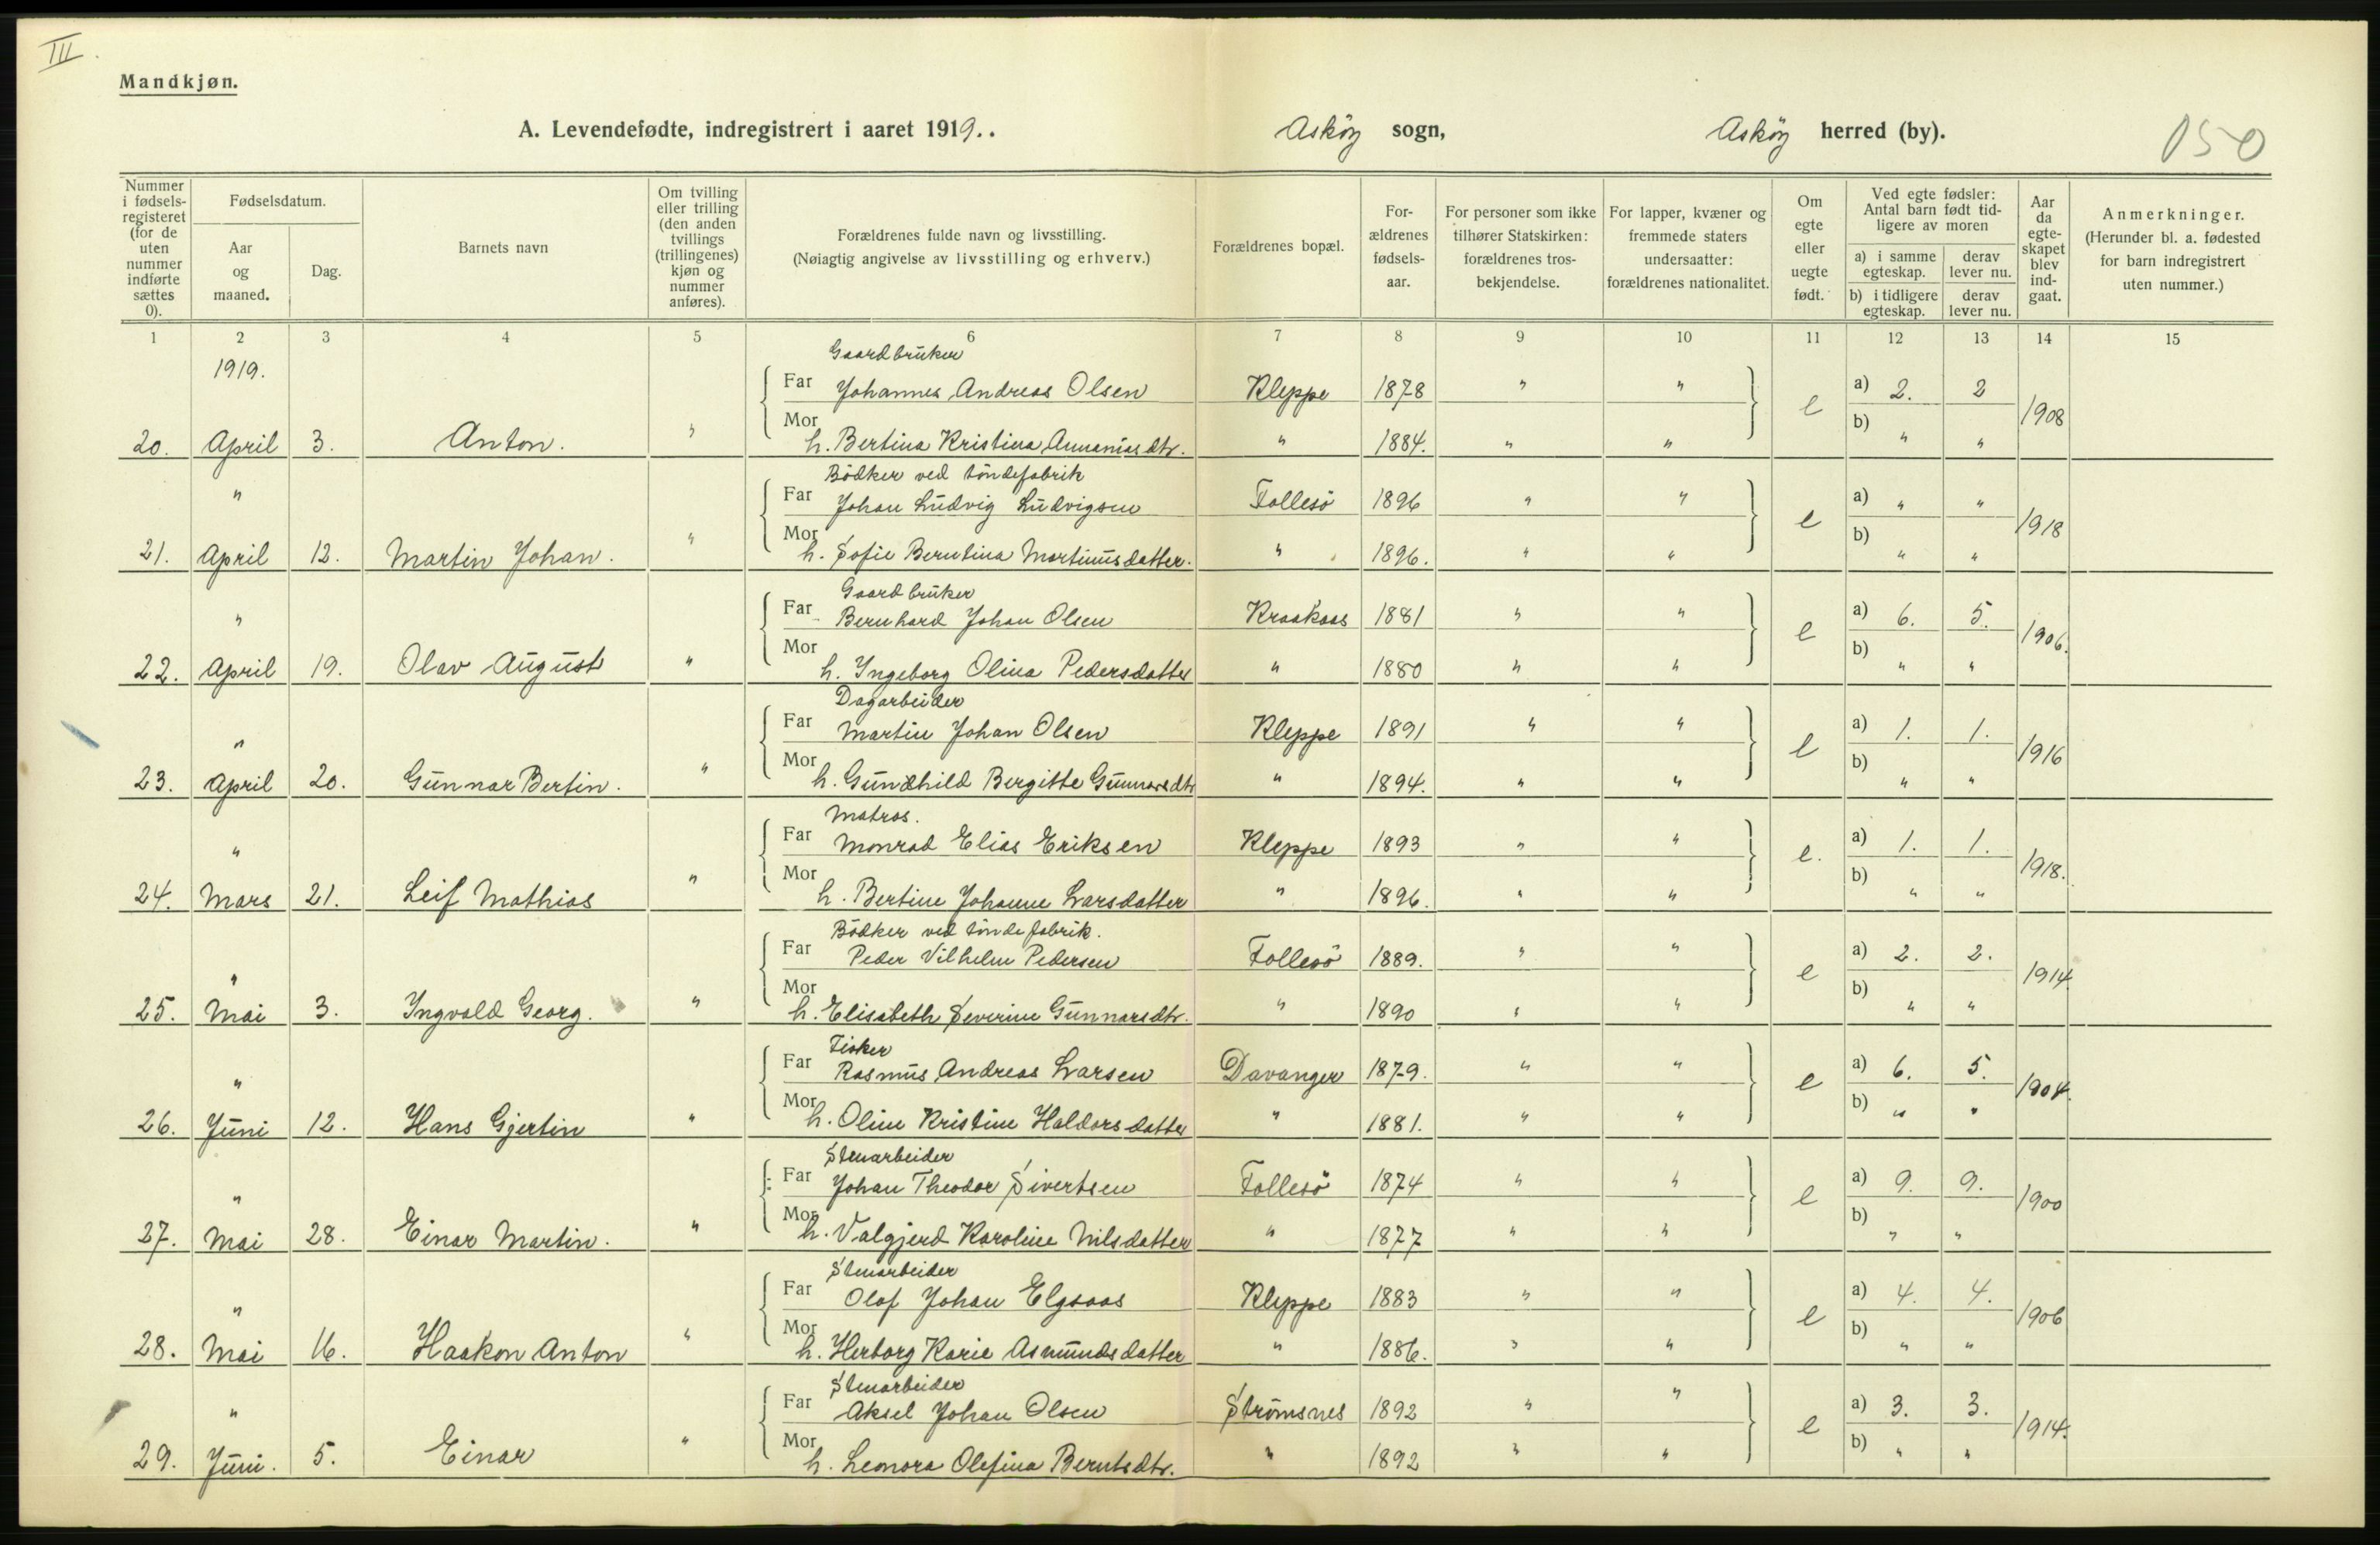 III.
Mandkjøn.
A. Levendefødte, indregistrert i aaret 1919. . Asköy sogn, Asköy herred (by). 150
Nummer i fødselsregisteret (for de uten nummer indførte sættes 0). Fødselsdatum. Aar og maaned. Dag. Barnets navn Om tvilling eller trilling (den anden tvillings (trillingenes) kjøn og nummer anføres). Forældrenes fulde navn og livsstilling. (Nøiagtig angivelse av livsstilling og erhverv.) Forældrenes bopæl. Forældrenes fødselsaar. For personer som ikke tilhører Statskirken: forældrenes trosbekjendelse. For lapper, kvæner og fremmede staters undersaatter: forældrenes nationalitet. Om egte eller uegte født. Ved egte fødsler: Antal barn født tidligere av moren a) i samme egteskap. derav lever nu. b) i tidligere egteskap. derav lever nu. Aar da egteskapet blev indgaat. Anmerkninger. (Herunder bl. a. fødested for barn indregistrert uten nummer.)
1 2 3 4 5 6 7 8 9 10 11 12 13 14 15
1919. Gaardbruker
Far Johannes Andreas Olsen Kleppe 1878 " " e a) 2. 2 1908
20. April 3. Anton. " Mor h. Bertina Kristina Annaniasdtr. " 1884. " " b) " "
" Bödker ved töndefabrik
Far Johan Ludvig Ludvigsen Follesö 1896 " " e a) " " 1918
21. April 12. Martin Johan. " Mor h. Sofie Berntina Martinusdatter. " 1896. " " b) " "
" Gaardbruker
Far Bernhard Johan Olsen Kraakaas 1881 " " e a) 6. 5. 1906.
22. April 19. Olav August " Mor h. Ingeborg Olina Pedersdatter " 1880 " " b) " "
" Dagarbeider
Far Martin Johan Olsen Kleppe 1891 " " e a) 1. 1. 1916
23. April 20. Gunnar Bertin. " Mor h. Gundhild Bergitte Gunnarsdtr " 1894. " " b) " "
" Matros.
Far Monrad Elias Eriksen Kleppe 1893 " " e. a) 1. 1. 1918.
24. Mars 21. Leif Mathias " Mor h. Bertine Johanne Larsdatter " 1896. " " b) " "
" Bödker ved töndefabrik.
Far Peder Vilhelm Pedersen Follesö 1889. " " e a) 2. 2. 1914.
25. Mai 3. Ingvald Georg. " Mor h. Elisabeth Severine Gunnarsdtr. " 1890 " " b) " "
" Fisker
Far Rasmus Andreas Larsen Davanger 1879. " " e a) 6. 5. 1904.
26. Juni 12. Hans Gjertin " Mor h. Oline Kristine Haldorsdatter " 1881. " " b) " "
" Stenarbeider
Far Johan Theodor Sivertsen Follesö 1874 " " e a) 9. 9. 1900
27. Mai 28. Einar Martin. " Mor h. Valgjerd Karoline Nilsdatter " 1877 " " b) " "
" Stenarbeider
Far Olaf Johan Elgsaas Kleppe 1883 " " e a) 4. 4. 1906
28. Mai 16. Haakon Anton " Mor h. Herborg Karie Asmundsdatter " 1886. " " b) " "
" Stenarbeider
Far Aksel Johan Olsen Strömsnes 1892 " " e a) 3. 3. 1914.
29. Juni. 5. Einar " Mor h. Leonora Olefina Berntsdtr. " 1892 " " b) " "